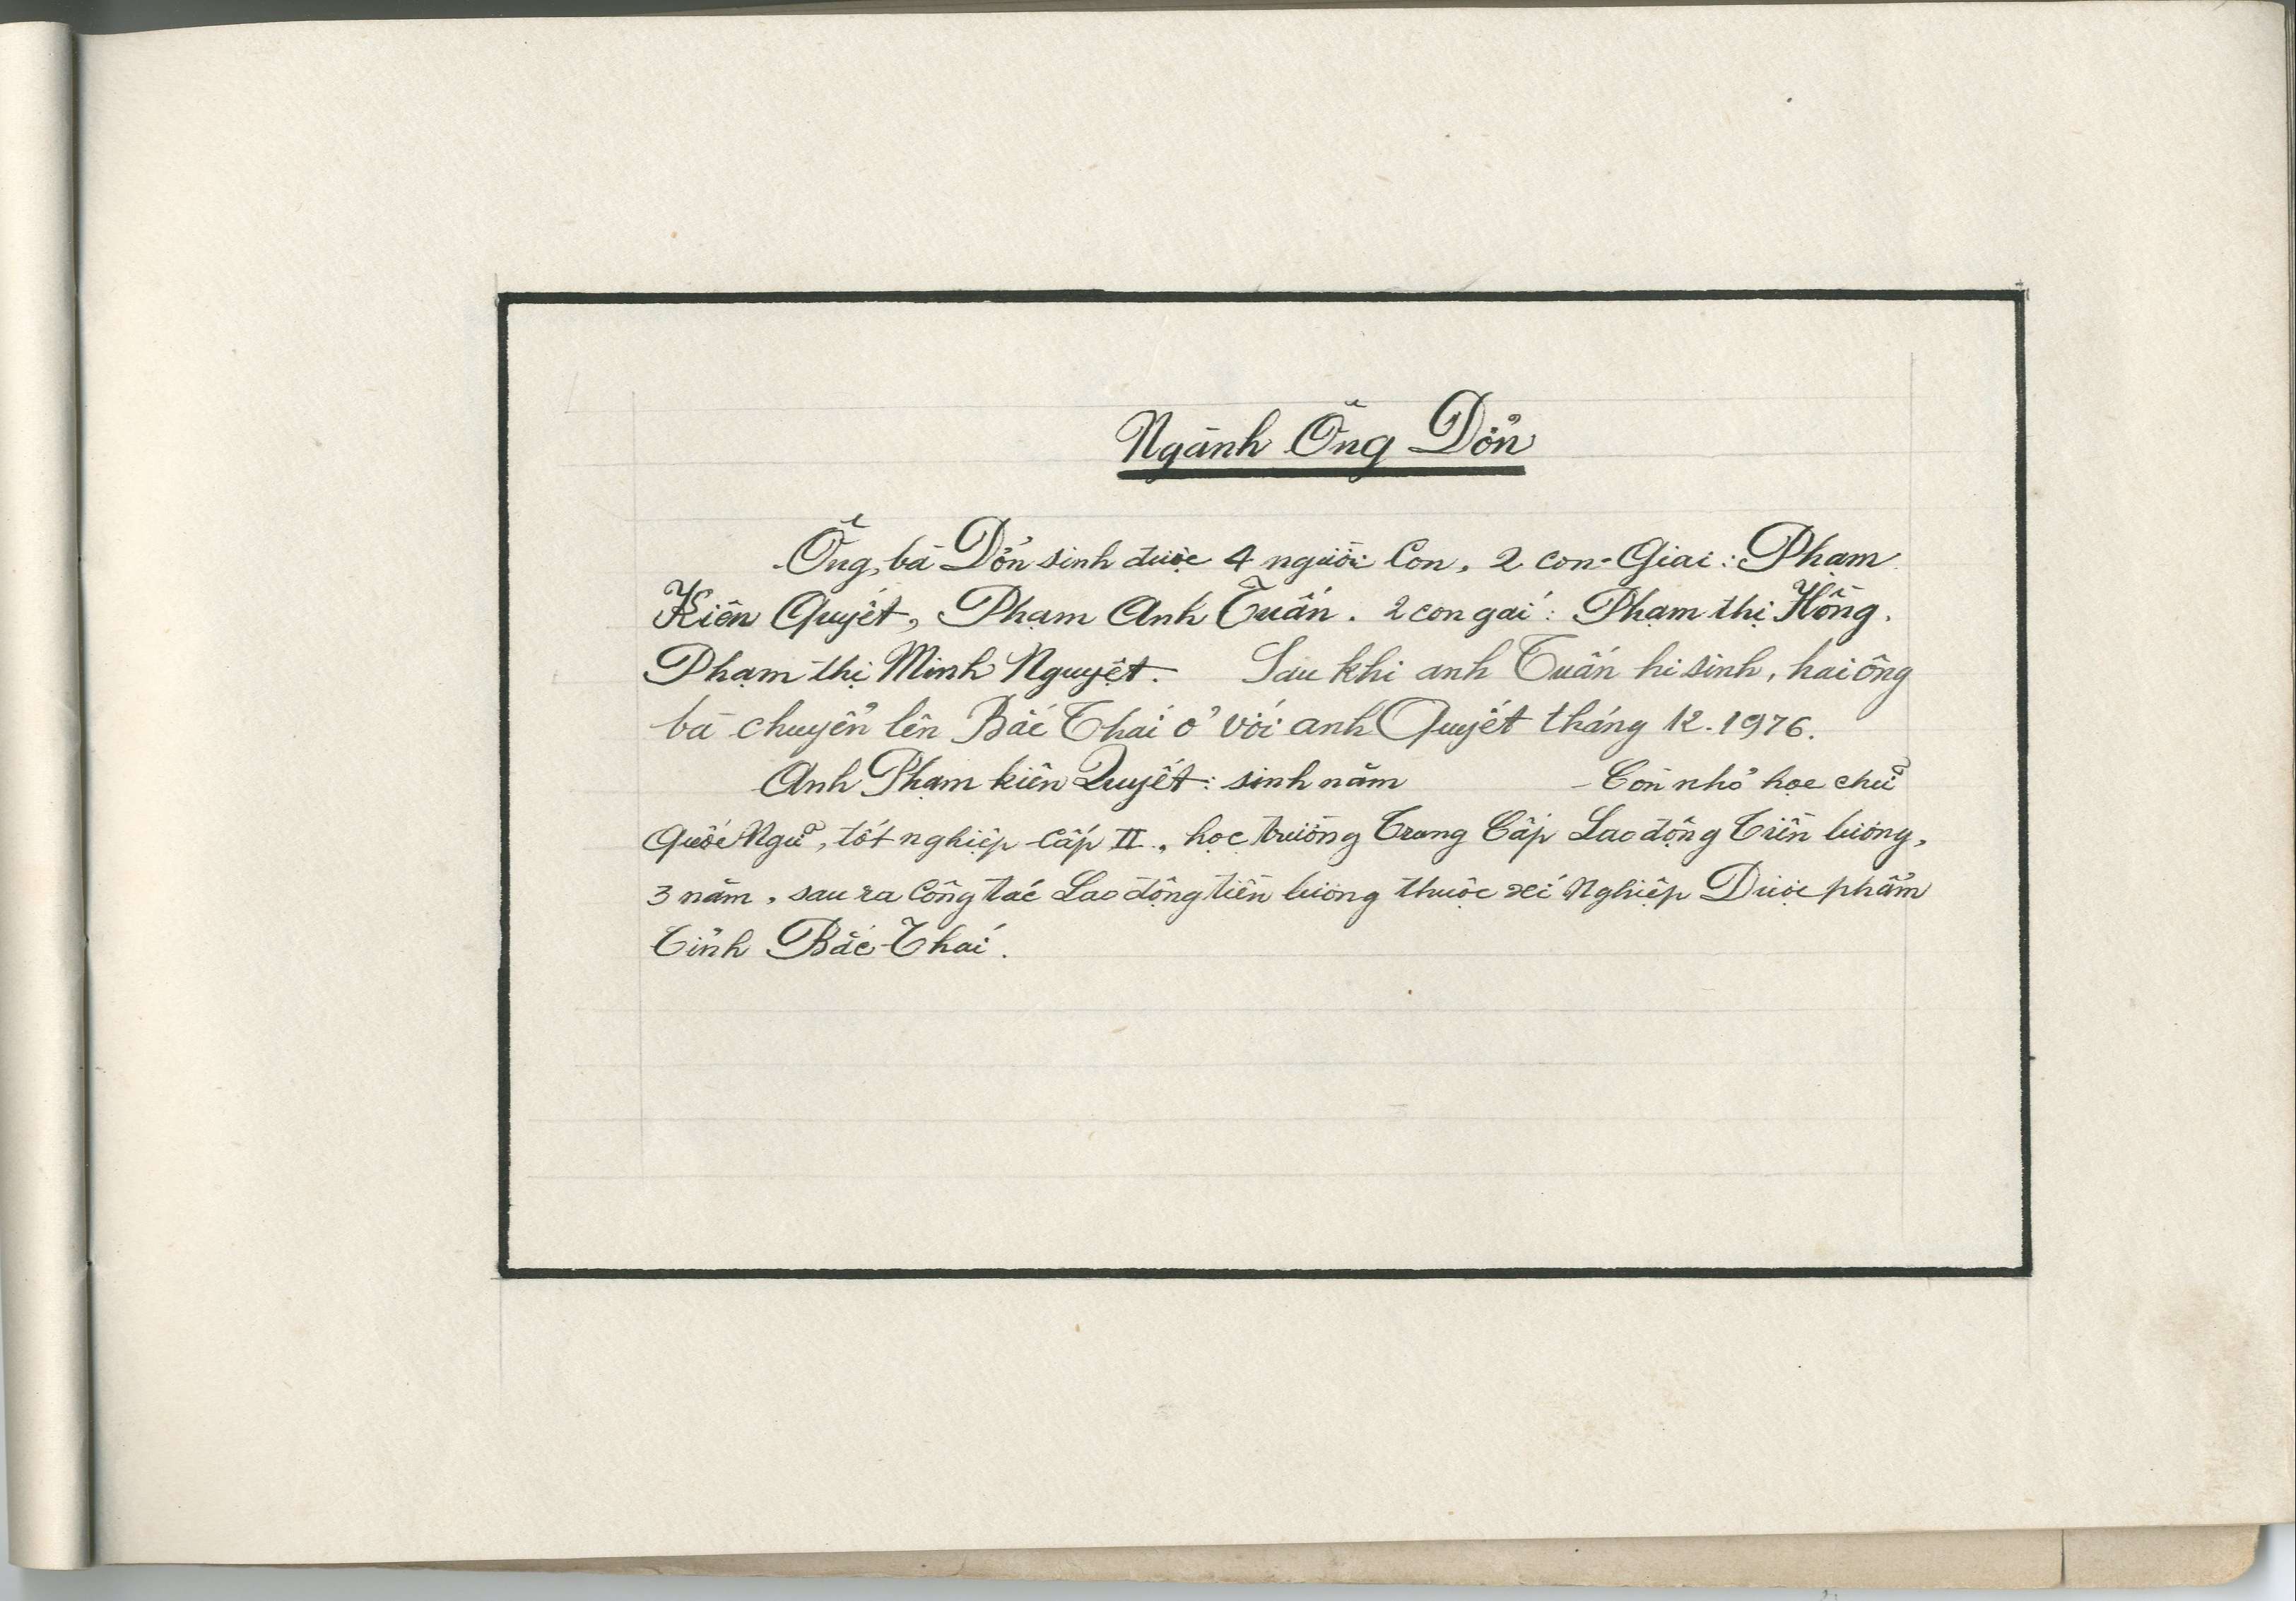 Ngành Ông Dổn
Ông, bà Dổn sinh được 4 người Con, 2 con-Giai: Phạm
Kiên Quyết, Phạm Anh Tuấn. 2 con gái: Phạm thị Hồng.
Phạm thị Minh Nguyệt. Sau khi anh Tuấn hi sinh, hai ông
bà chuyển lên Bắc Thái ở với anh Quyết tháng 12.1976.
Anh Phạm kiên Quyết: sinh năm - Còn nhỏ học chữ
Quốc Ngữ, tốt nghiệp cấp II, học trường Trung Cấp Lao động Tiền lương,
3 năm, sau ra Công tác Lao động tiền lương thuộc xí Nghiệp Dược phẩm
Tỉnh Bắc-Thái.